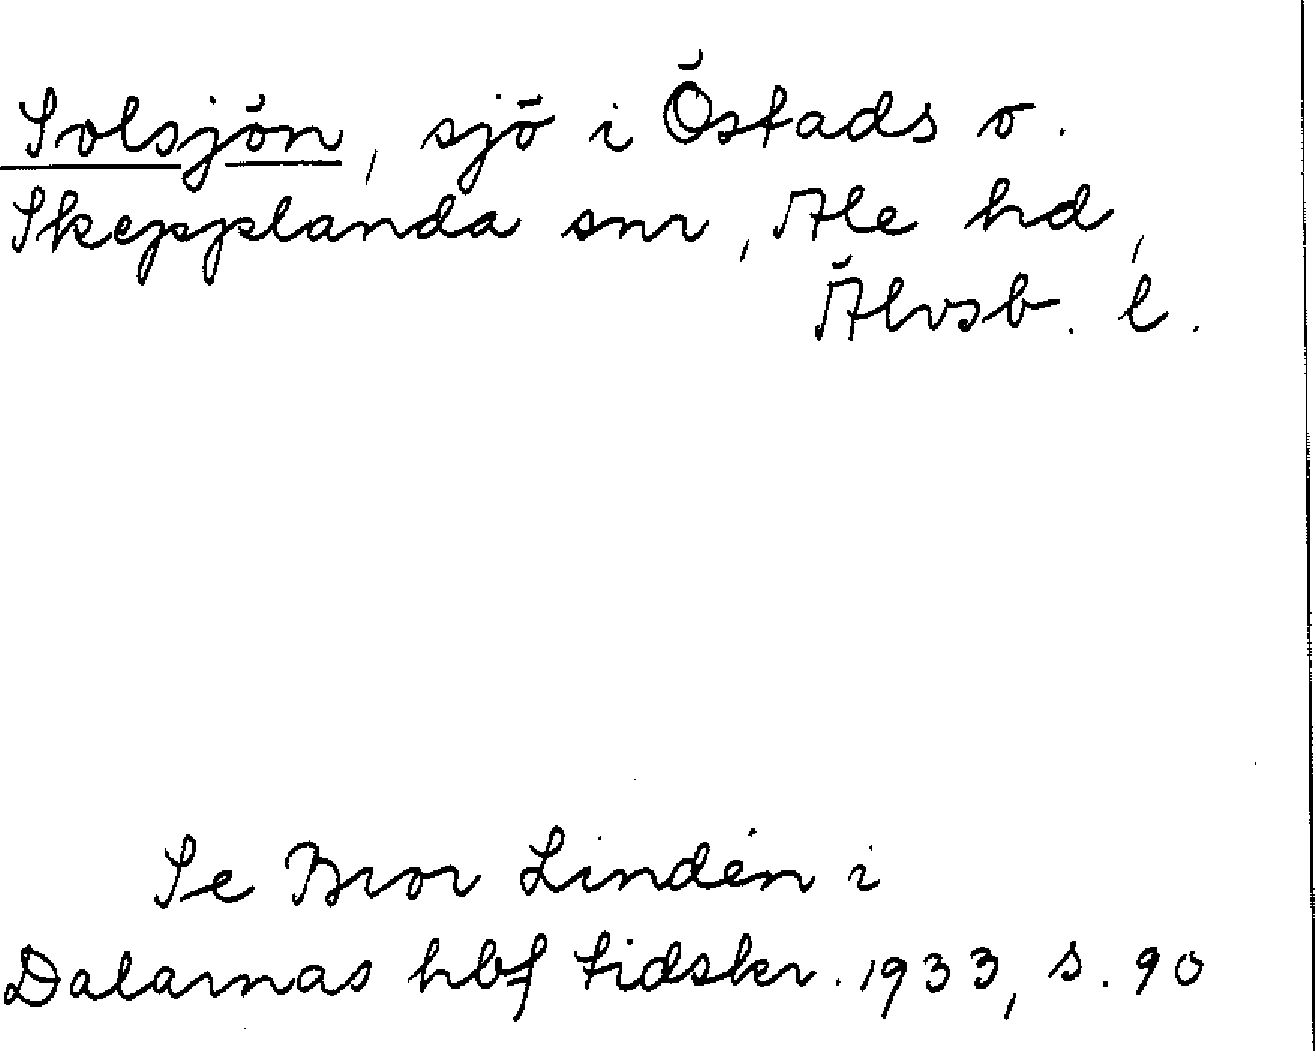 Solsjön, sjö i Östads o.
Skepplanda snr, Ale hd,
Älvsb. l.
Se Bror Lindén i
Dalarnas hbf tidskr. 1933, s. 90